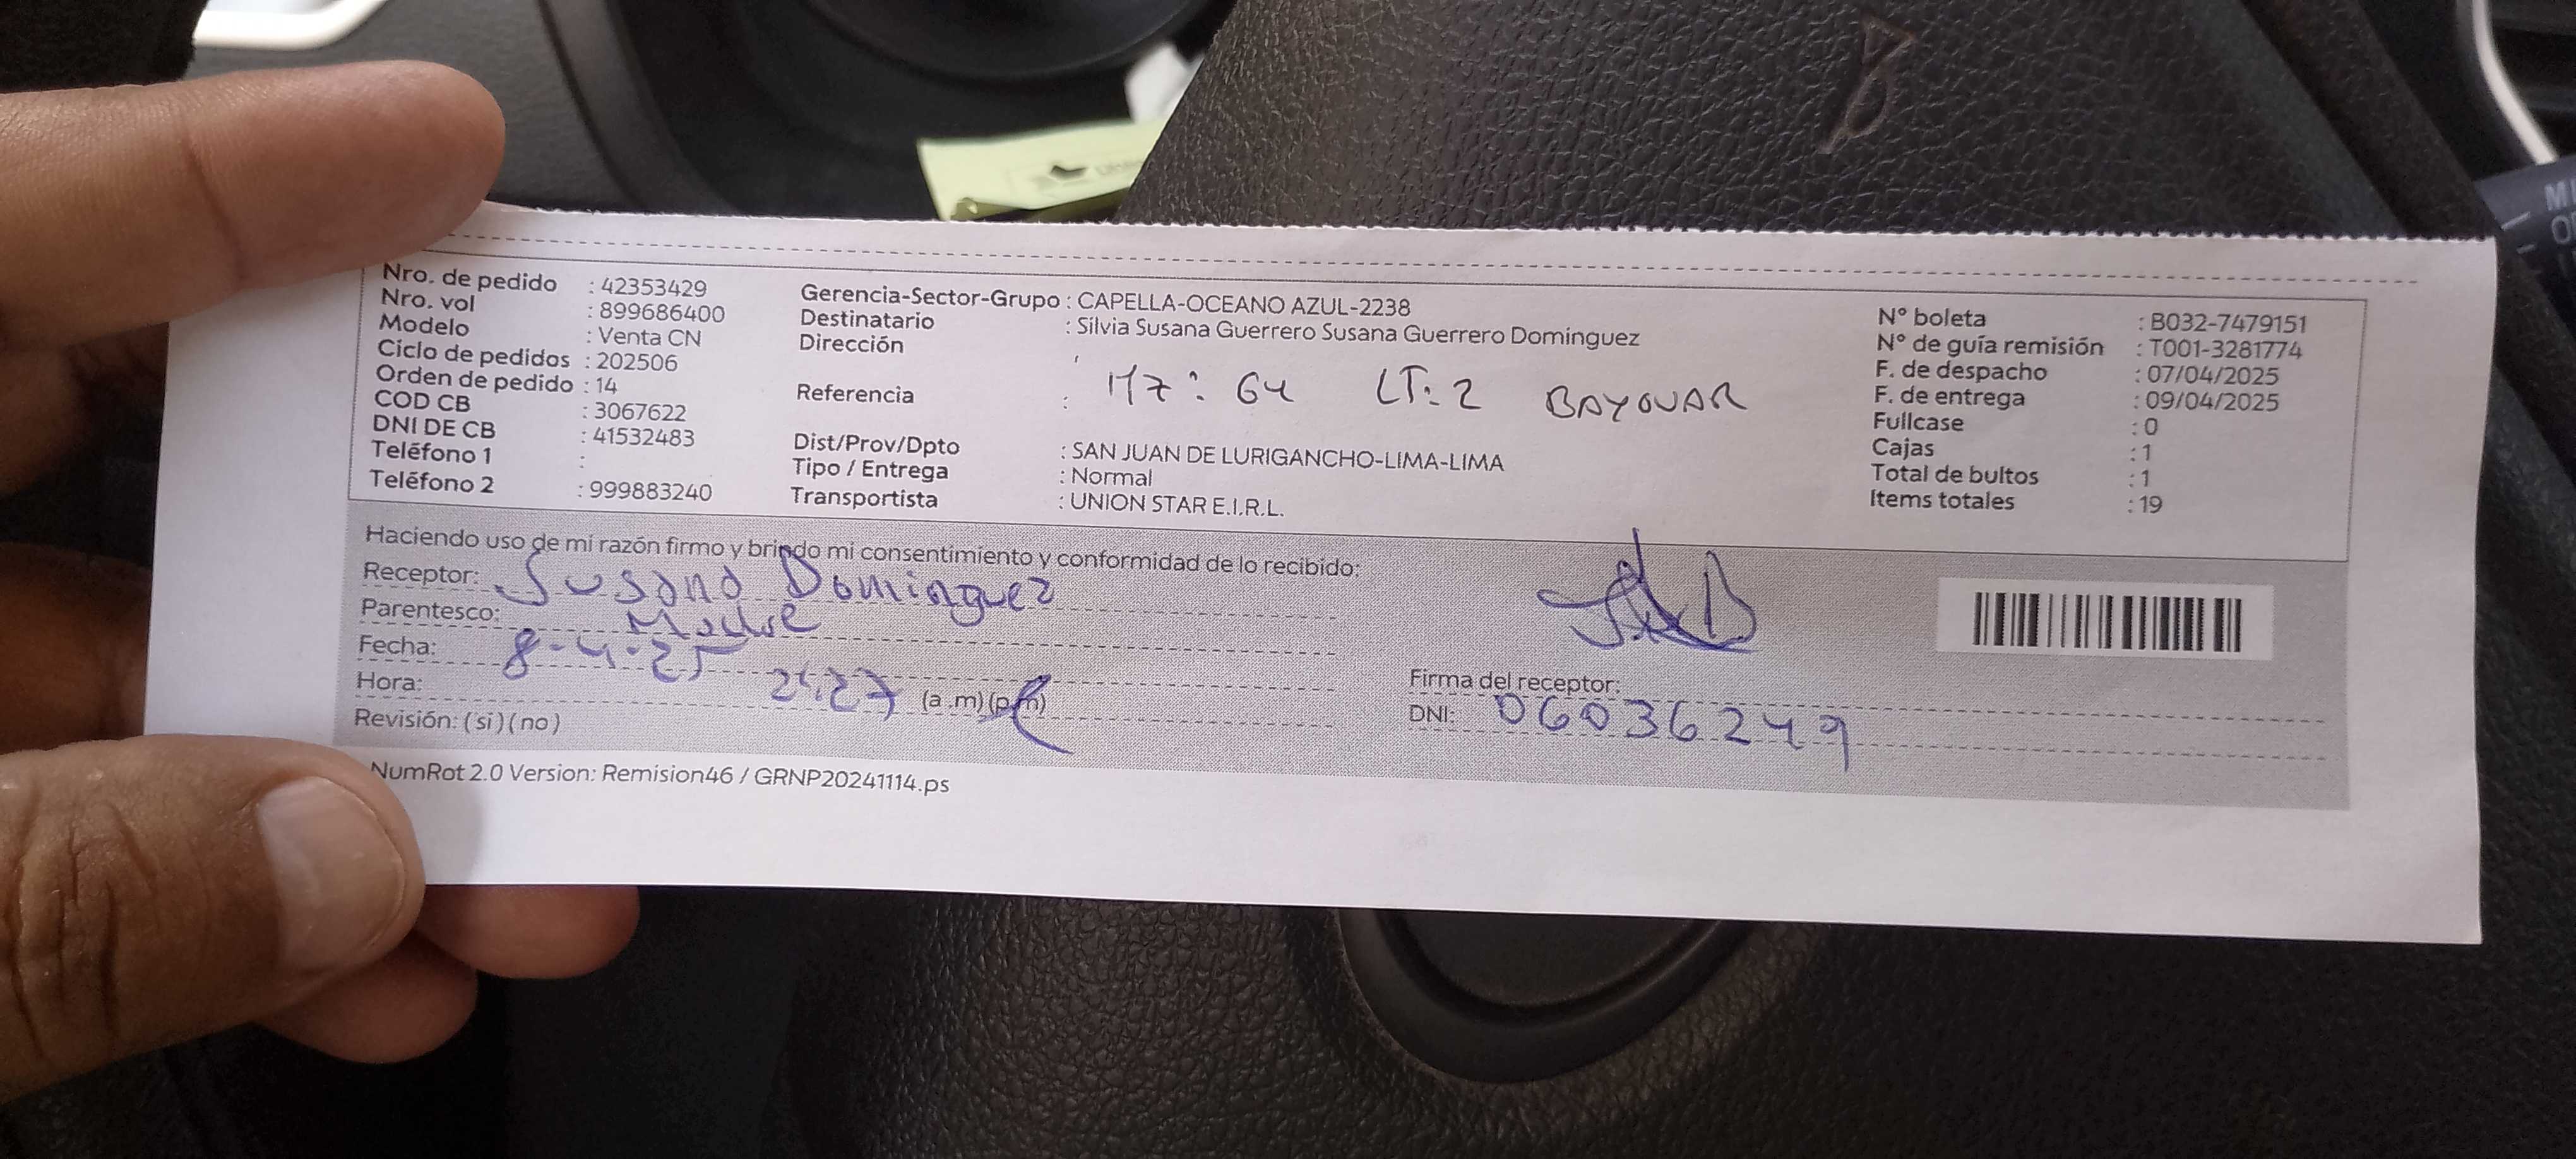 Nro. de pedido : 42353429
Nro. vol : 899686400
Modelo : Venta CN
Ciclo de pedidos : 202506
Orden de pedido : 14
COD CB : 3067622
DNI DE CB : 41532483
Teléfono 1 :
Teléfono 2 : 999883240
Gerencia-Sector-Grupo : CAPELLA-OCEANO AZUL-2238
Destinatario : Silvia Susana Guerrero Susana Guerrero Dominguez
Dirección
Referencia : MZ: 64 LT: 2 BAYOVAR
Dist/Prov/Dpto : SAN JUAN DE LURIGANCHO-LIMA-LIMA
Tipo / Entrega : Normal
Transportista : UNION STAR E.I.R.L.
N° boleta : B032-7479151
N° de guía remisión : T001-3281774
F. de despacho : 07/04/2025
F. de entrega : 09/04/2025
Fullcase : 0
Cajas : 1
Total de bultos : 1
Items totales : 19
Haciendo uso de mi razón firmo y brindo mi consentimiento y conformidad de lo recibido:
Receptor: Susana Dominguez
Parentesco: Madre
Fecha: 8-4-25
Hora: (a .m) (p.m)
Revisión: ( si ) ( no )
Firma del receptor:
DNI: 06036249
NumRot 2.0 Version: Remision46 / GRNP20241114.ps